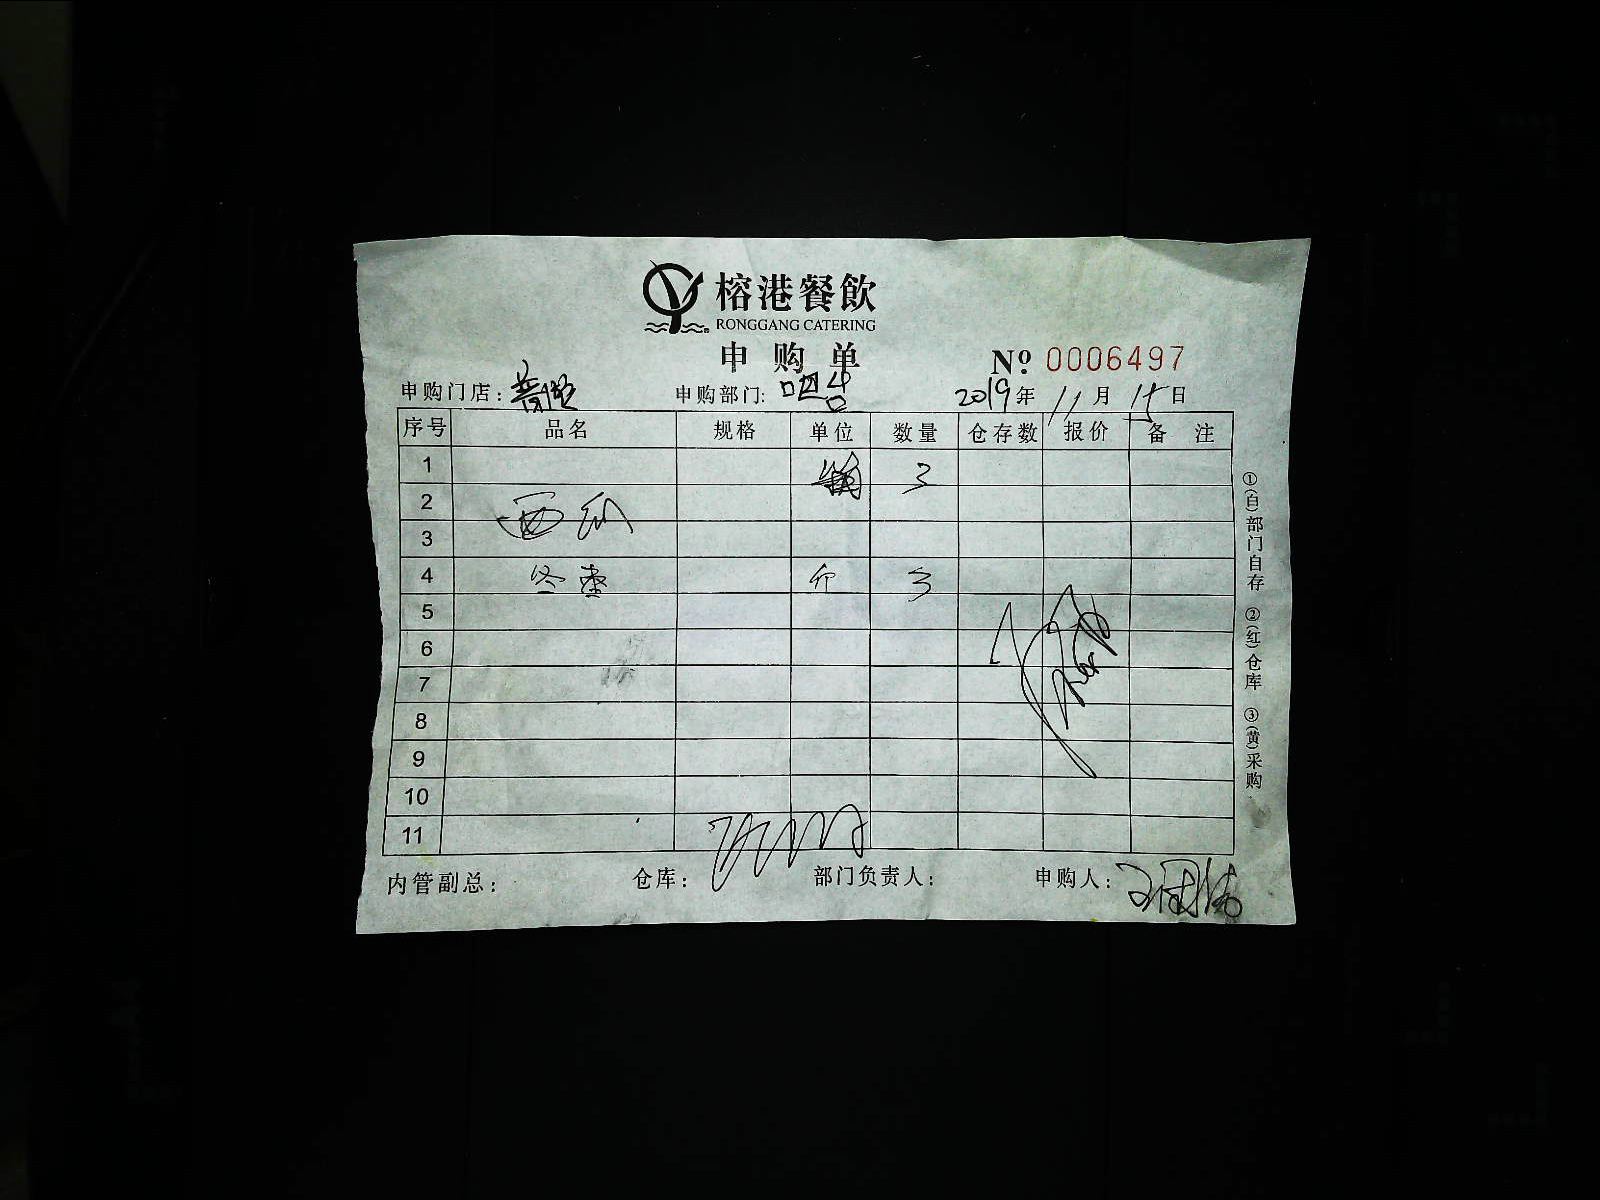 榕港餐飲
RONGGANG CATERING
申购单
№ 0006497
申购门店: 申购部门: 吧台 2019年11月15日
序号 品名 规格 单位 数量 仓存数 报价 备注
1 3
2 西瓜
3
4 冬枣 斤 3
5
6
7
8
9
10
11
内管副总: 仓库: 部门负责人: 申购人:
①(白)部门自存 ②(红)仓库 ③(黄)采购